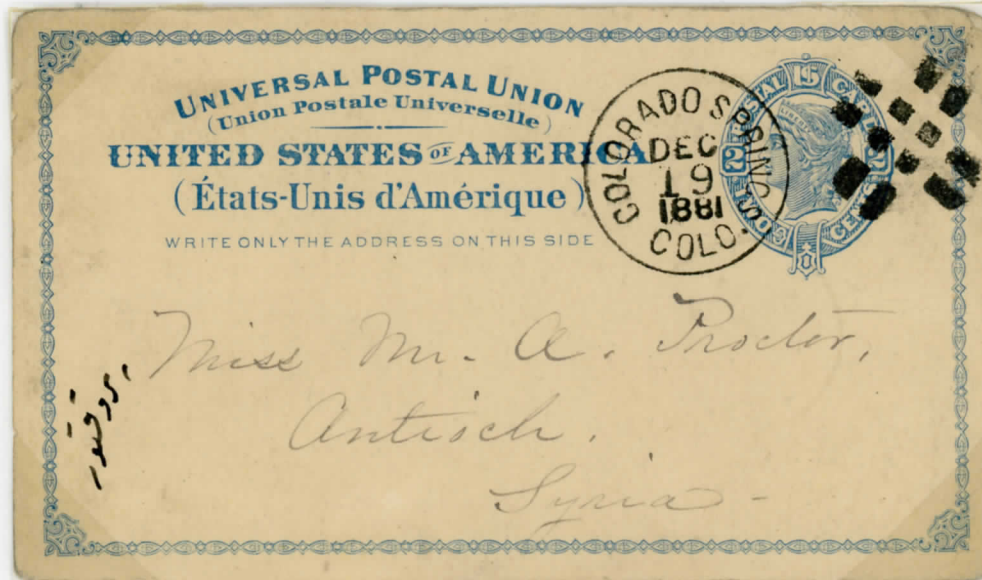 UNIVERSAL POSTAL UNION
(Union Postale Universelle)
UNITED STATES OF AMERICA
(États-Unis d'Amérique)
WRITE ONLY THE ADDRESS ON THIS SIDE
COLORADO SPRINGS
DEC
19
1881
COLO.
Miss M. A. Proctor,
Antioch.
Syria